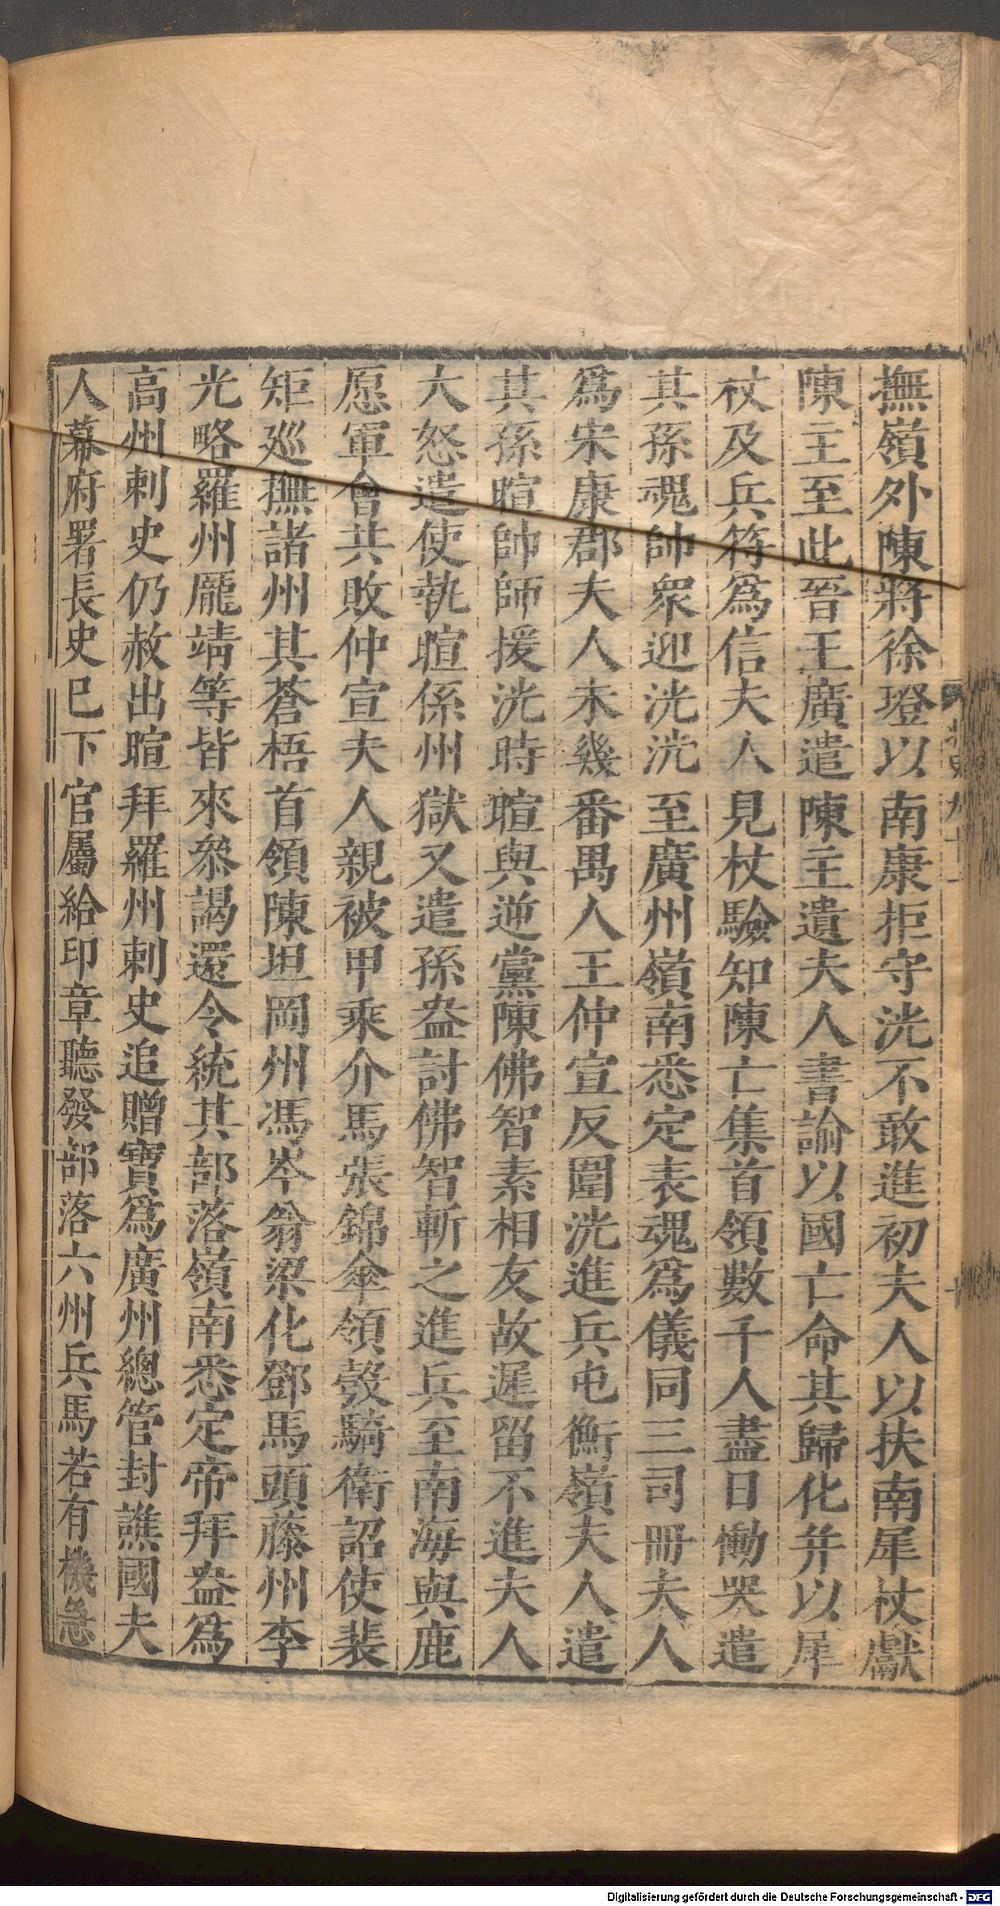 撫嶺外陳將徐璒以南康拒守洸不敢進初夫人以扶南犀杖獻
陳主至此晉王廣遣陳主遺夫人書諭以國亡命其歸化并以犀
杖及兵符爲信夫人見杖驗知陳亡集首領數千人盡日慟哭遣
其孫魂帥衆迎洸洸至廣州嶺南悉定表魂爲儀同三司冊夫人
爲宋康郡夫人未幾番禺人王仲宣反圍洸進兵屯衡嶺夫人遣
其孫暄帥師援洸時暄與逆黨陳佛智素相友故遲留不進夫人
大怒遣使執暄係州獄又遣孫盎討佛智斬之進兵至南海與鹿
愿軍會共敗仲宣夫人親被甲乘介馬張錦傘領彀騎衛詔使裴
矩巡撫諸州其蒼梧首領陳坦岡州馮岑翁梁化鄧馬頭藤州李
光略羅州龐靖等皆來叅謁還令統其部落嶺南悉定帝拜盎爲
高州刺史仍赦出暄拜羅州刺史追贈寶爲廣州總管封譙國夫
人幕府署長史已下官屬給印章聽發部落六州兵馬若有機急
Digitalisierung gefördert durch die Deutsche Forschungsgemeinschaft - DFG